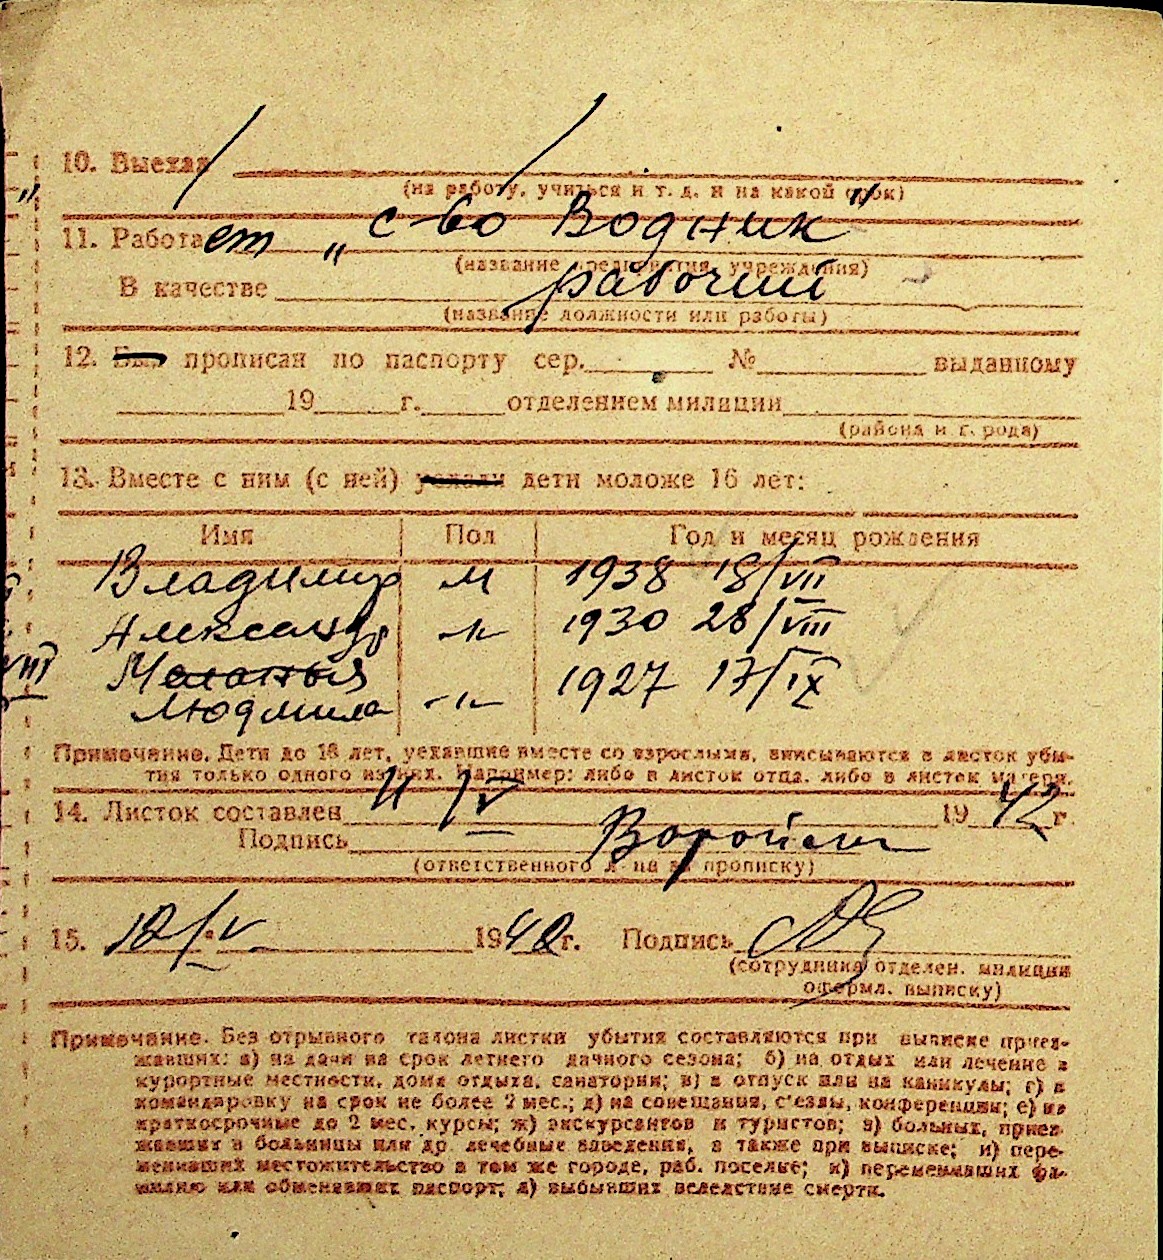 10. Выехал
(на работу, учиться и т. д. и на какой срок)
11. Работает „с-во Водник"
(название предприятия, учреждения)
В качестве рабочий
(название должности или работы)
12. Был прописан по паспорту сер. № выданному
19 г. отделением милиции
(района и города)
13. Вместе с ним (с ней) уехали дети моложе 16 лет:
Имя Пол Год и месяц рождения
Владимир м 1938 18/VII
Александр -"- 1930 28/VIII
VIII Меланья 1927 17/IX
Людмила -"-
Примечание. Дети до 16 лет, уехавшие вместе со взрослыми, вписываются в листок убы-
тия только одного из них. Например: либо в листок отца, либо в листок матери.
14. Листок составлен 11/V 1942 г.
Подпись
(ответственного л-ца за прописку)
15. 12/V 1942 г. Подпись
(сотрудника отделен. милиции
оформл. выписку)
Примечание. Без отрывного талона листки убытия составляются при выписке приез-
жавших: а) на дачи на срок летнего дачного сезона; б) на отдых или лечение в
курортные местности, дома отдыха, санатории; в) в отпуск или на каникулы; г) в
командировку на срок не более 2 мес.; д) на совещания, с'езды, конференции; е) на
краткосрочные до 2 мес. курсы; ж) экскурсантов и туристов; з) больных, приез-
жавших в больницы или др. лечебные заведения, а также при выписке; и) пере-
менивших местожительство в том же городе, раб. поселке; к) переменивших фа-
милию или обменявших паспорт; л) выбывших вследствие смерти.